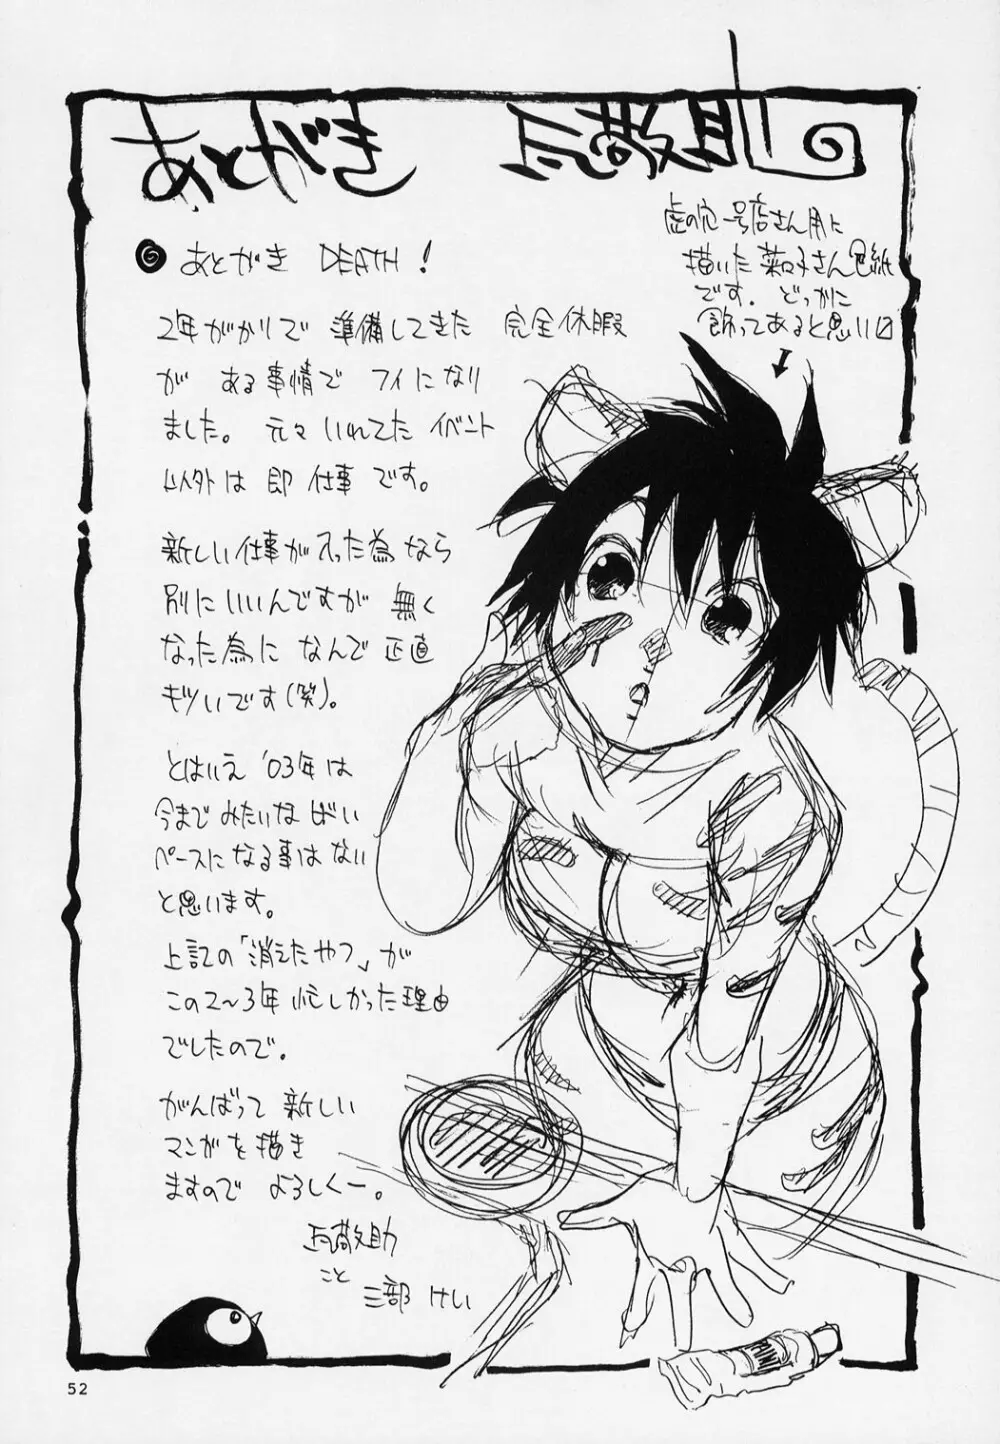 あとがき 瓦敬助の
虎の穴一号店さん用に
描いた菜々子さん色紙
です。どっかに
飾ってあると思い□
あとがき DEATH!
2年がかりで 準備してきた 完全休暇
が ある事情で フイになり
ました。元々 いれてた イベント
以外は 即 仕事 です。
新しい仕事が入った為なら
別にいいんですが 無く
なった為に なんで 正直
キツいです(笑)。
とはいえ '03年は
今まで みたいな ばい
ペースになる事はない
と思います。
上記の「消えたやつ」が
この2~3年 忙しかった理由
でしたので。
がんばって 新しい
マンガを描き
ますので よろしくー。
瓦敬助
こと
三部 けい
52